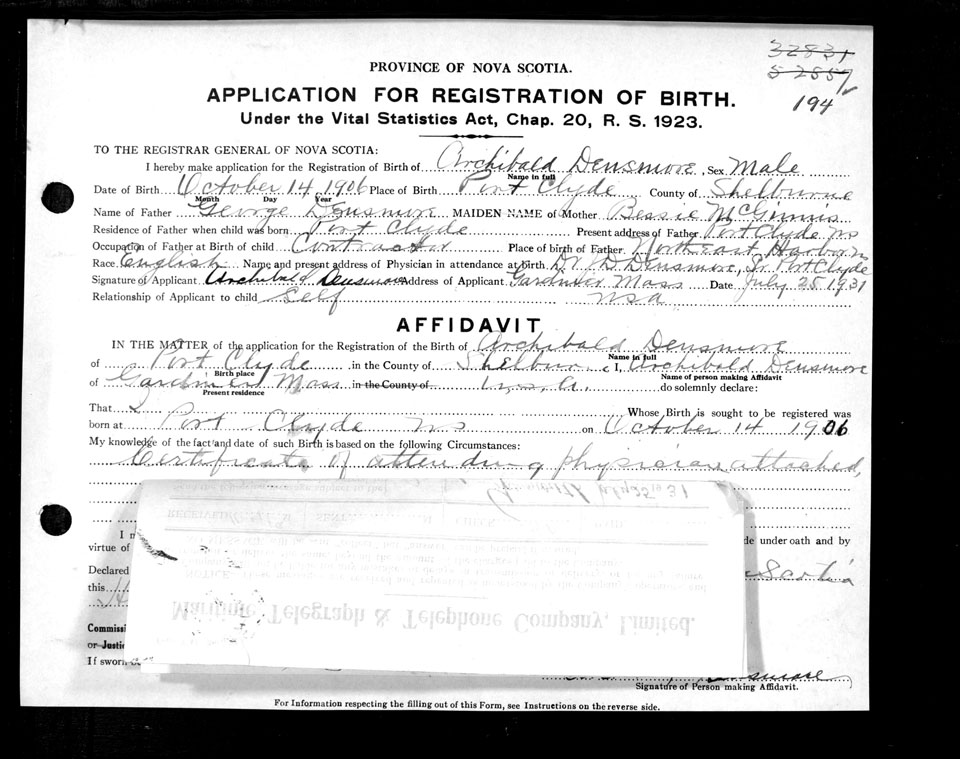 32831
52857
194
PROVINCE OF NOVA SCOTIA.
APPLICATION FOR REGISTRATION OF BIRTH.
Under the Vital Statistics Act, Chap. 20, R. S. 1923.
TO THE REGISTRAR GENERAL OF NOVA SCOTIA:
I hereby make application for the Registration of Birth of Archibald Densmore, Sex Male
Name in full
Date of Birth October 14, 1906 Place of Birth Port Clyde County of Shelburne
Month Day Year
Name of Father George Densmore MAIDEN NAME of Mother Bessie McGinnis
Residence of Father when child was born Port Clyde Present address of Father Port Clyde NS
Occupation of Father at Birth of child Contractor Place of birth of Father Northeast Harbor NS
Race English Name and present address of Physician in attendance at birth Dr. J D Densmore, Port Clyde
Signature of Applicant Archibald Densmore Address of Applicant Gardner Mass Date July 25 1931
Relationship of Applicant to child Self USA
AFFIDAVIT
IN THE MATTER of the application for the Registration of the Birth of Archibald Densmore
Name in full
of Port Clyde in the County of Shelburn I, Archibald Densmore
Birth place Name of person making Affidavit
of Gardner Mass in the County of U.S.A. do solemnly declare:
Present residence
That I Whose Birth is sought to be registered was
born at Port Clyde NS on October 14 1906
My knowledge of the fact and date of such Birth is based on the following Circumstances:
Certificate of attending physician attached,
July 25 1931
I
de under oath and by
virtue of
Declared Scotia
this
Maritime Telegraph & Telephone Company, Limited.
Commissi
or Justic
If sworn
Signature of Person making Affidavit.
For Information respecting the filling out of this Form, see Instructions on the reverse side.